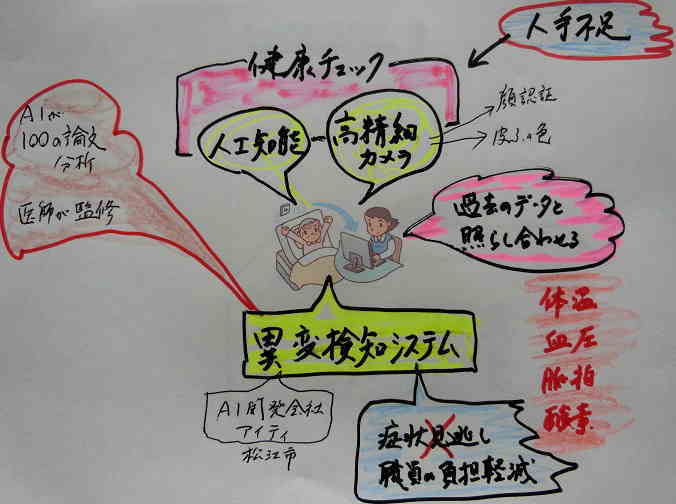 人手不足
健康チェック
人工知能
高精細
カメラ
顔認証
皮ふの色
AIが
100の論文
分析
医師が監修
過去のデータと
照らし合わせる
体温
血圧
脈拍
酸素
異変検知システム
AI開発会社
アイティ
松江市
症状見逃し
職員の負担軽減